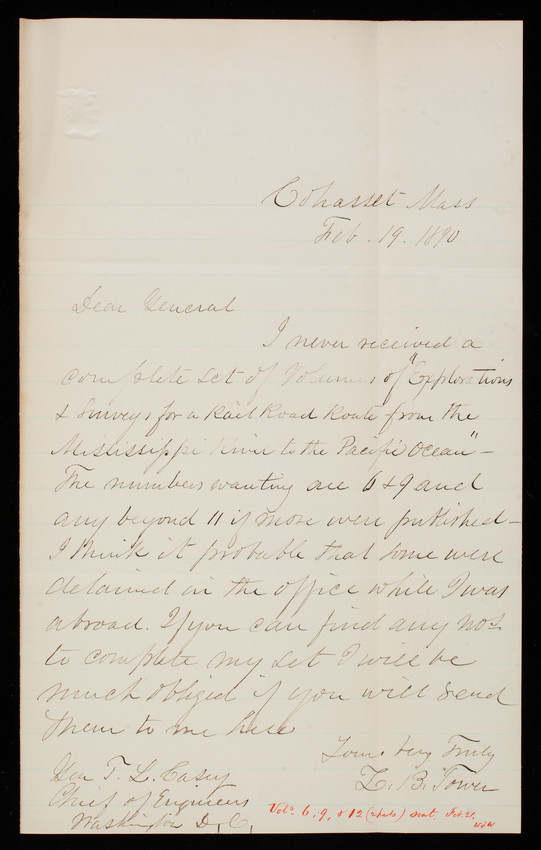 Cohasset Mass
Feb. 19. 1890
Dear General
I never received a
complete set of Volumes of "Explorations
& Surveys for a Rail Road Route from the
Mississippi River to the Pacific Ocean" -
The numbers wanting are 6 & 9 and
any beyond 11 if more were published -
I think it probable that some were
detained in the office while I was
abroad. If you can find any Nos.
to complete my set I will be
much obliged if you will send
them to me here
Yours very Truly
Z. B. Tower
Gen T. L. Casey
Chief of Engineers
Washington D. C.
Vols. 6, 9, & 12 (2 parts) sent. Feb. 21,